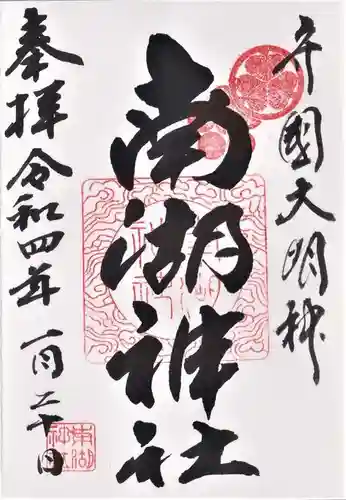 守國大明神
南湖神社
奉拝
令和四年一月二十日